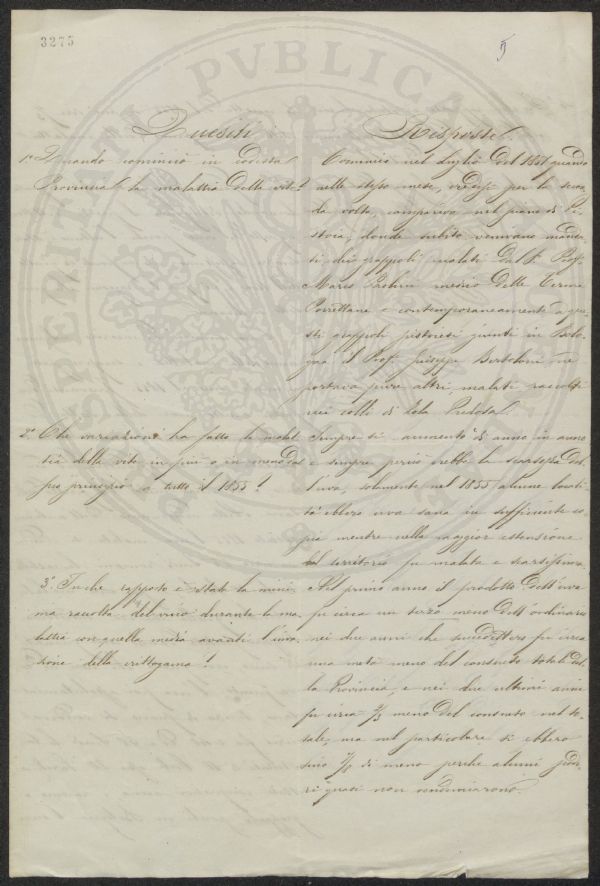 3275
9
Quesiti
1.° Quando cominciò in codesta
Provincia la malattia della vite?
2.° Che variazioni ha fatto la malat
tia della vite in più o in meno dal
suo principio a tutto il 1855?
3.° In che rapporto è stata la mini
ma raccolta del vino durante la ma
lattia con quella media avanti l'inva
sione della crittogama?
Risposte
Cominciò nel Luglio del 1851 quando
nello stesso mese, per la secon
da volta, compariva nel piano di Pi
stoia, donde subito venivano manda
ti dei grappoli malati dal S. Prof.
Marco Paolini medico delle Terme
Porrettane e contemporaneamente a que
sti grappoli pistoiesi giunti in Bolo
gna il Prof. Giuseppe Bertoloni ne
portava pure altri malati raccolti
nei colli di Zola Predosa.
Sempre si aumentò di anno in anno
e sempre perciò crebbe la scarsezza del
l'uva, solamente nel 1855 alcune locali
tà ebbero uva sana in sufficiente co
pia mentre nella maggior estensione
del territorio fu malata e scarsissima.
Nel primo anno il prodotto dell'uva
fu circa un terzo meno dell'ordinario
nei due anni che succedettero fu circa
una metà meno del consueto totale del
la Provincia, e nei due ultimi anni
fu circa 2/3 meno del consueto nel to
tale, ma nel particolare si ebbero
sino di meno perchè alcuni pode
ri quasi non vendemmiarono.